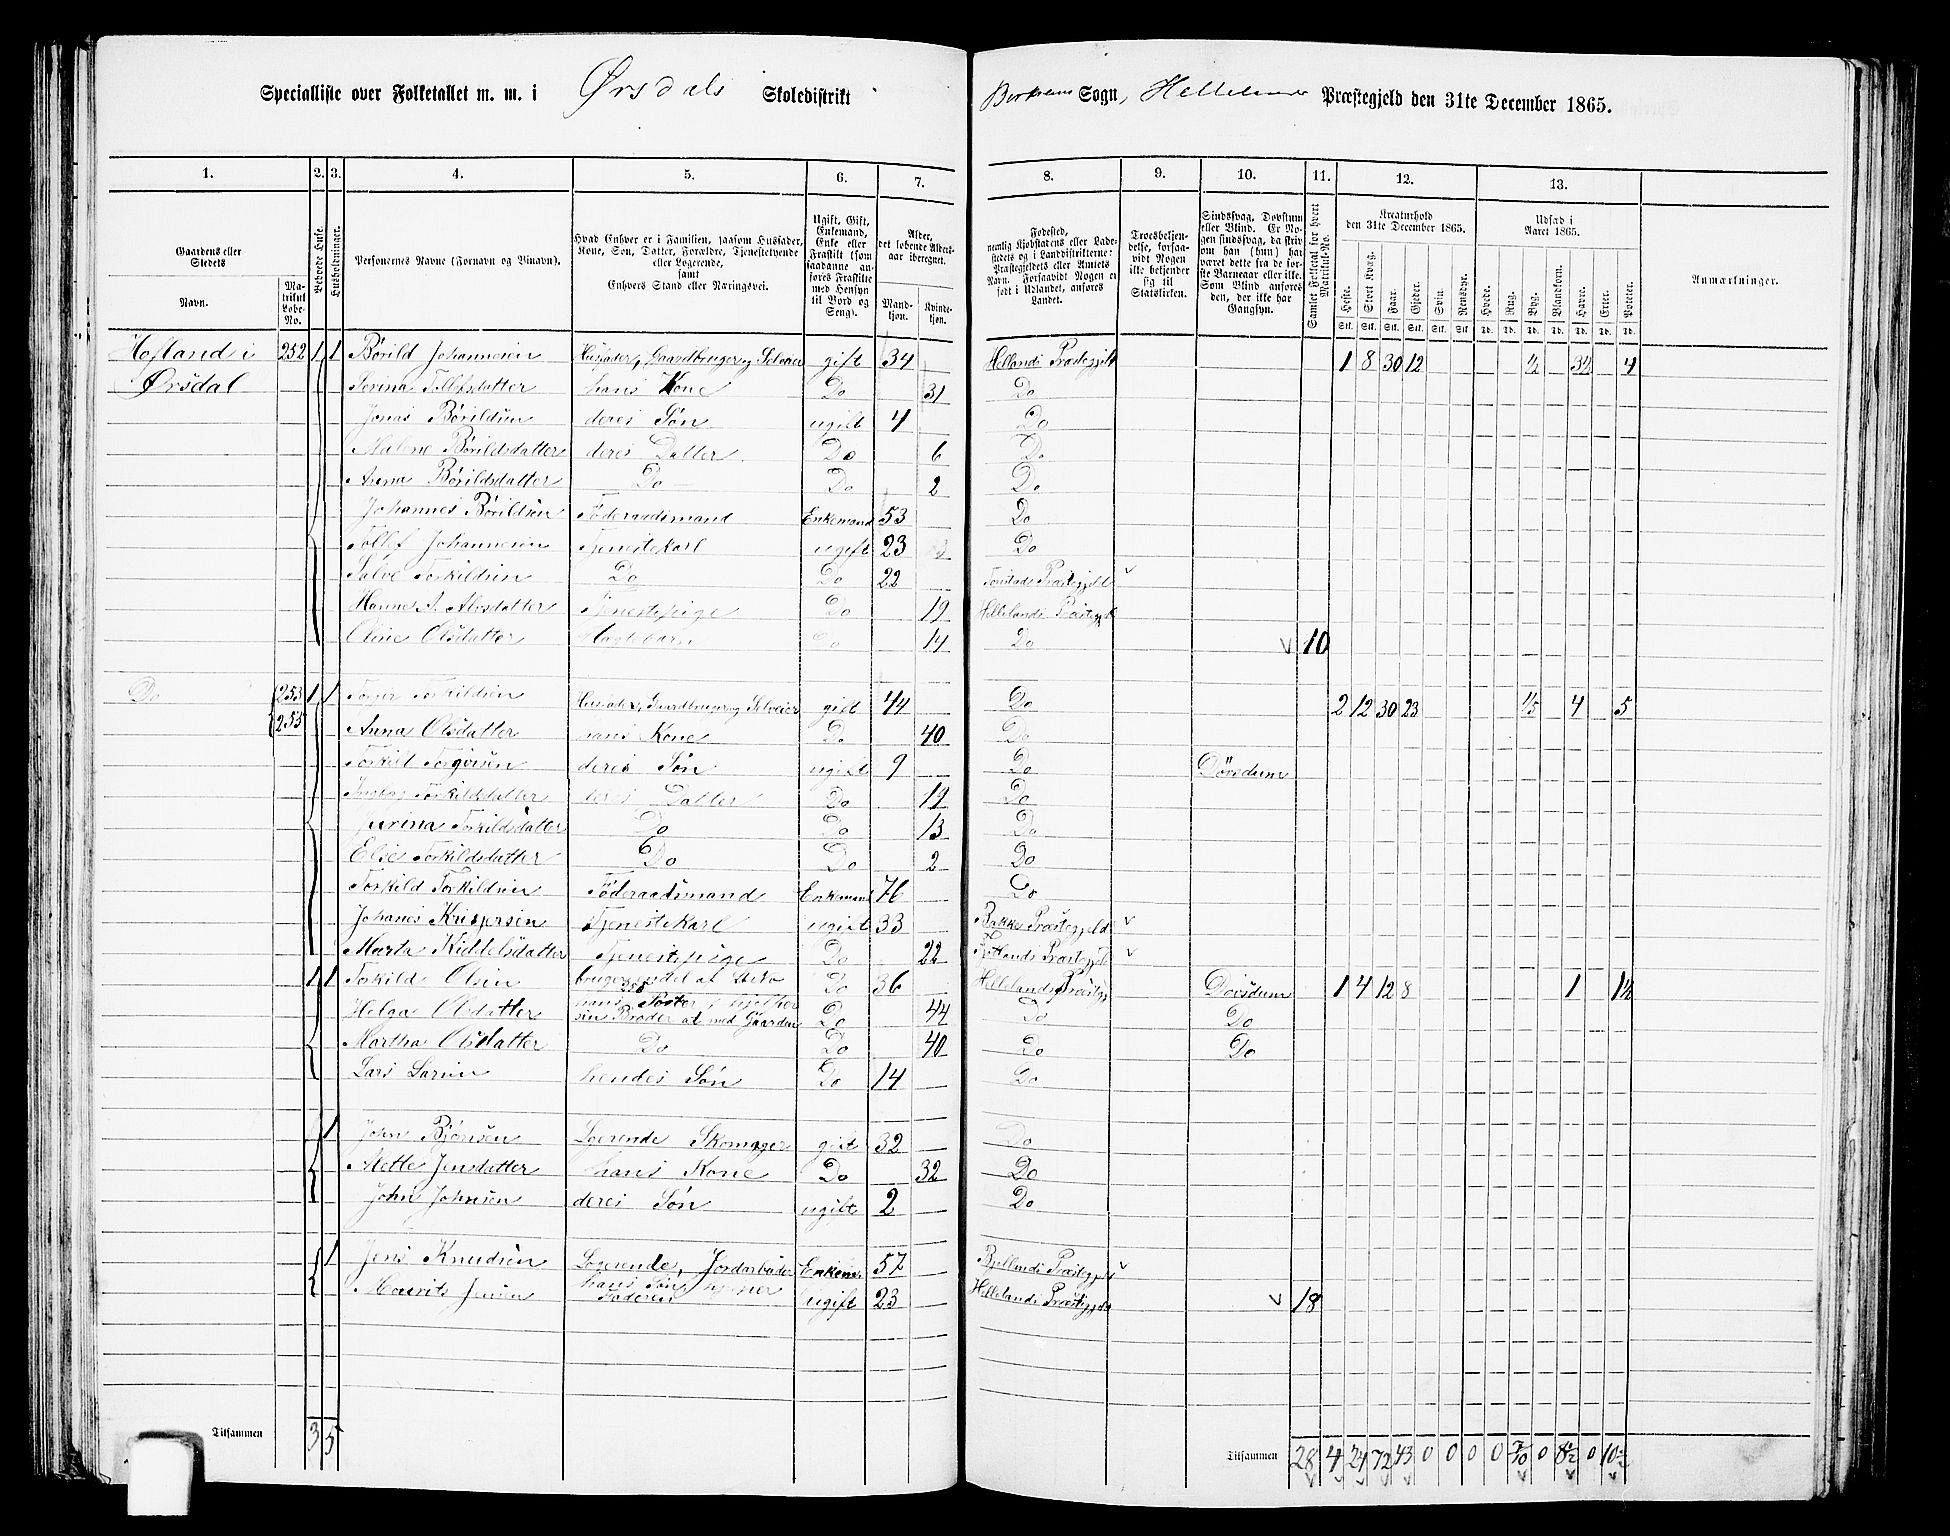 Specialliste over Folketallet m. m. i Ørsdals Skoledistrikt
Sogn, Hellelands Præstegjeld den 31te December 1865.
1. 2. 3. 4. 5. 6. 7. 8. 9. 10. 11. 12. 13.
Gaardens eller Stedets Navn.
Matrikul Løbe-No.
Beboede Huse.
Husholdninger.
Personernes Navne (Fornavn og Tilnavn).
Hvad Enhver er i Familien, saasom Husfader, Kone, Søn, Datter, Forældre, Tjenestetyende eller Logerende, samt Enhvers Stand eller Næringsvei.
Ugift, Gift, Enkemand, Enke eller Fraskilt (som saadanne anføres Fraskilte med Hensyn til Bord og Seng).
Alder, det løbende Aldersaar iberegnet.
Mandkjøn. Kvindekjøn.
Fødested, nemlig Kjøbstadens eller Ladestedets og i Landdistrikterne: Præstegjeldets eller Amtets Navn. Forsaavidt Nogen er født i Udlandet, anføres Landet.
Troesbekjendelse, forsaavidt Nogen ikke bekjender sig til Statskirken.
Sindssvag, Døvstum eller Blind. Er Nogen sindssvag, da skriv om han (hun) har været dette fra de første Barneaar eller ikke. Som Blind anføres den, der ikke har Gangsyn.
Samlet Folketal for hvert Matrikul-No.
Kreaturhold den 31te December 1865.
Heste. Stort Kvæg. Faar. Gjeder. Svin. Rensdyr.
Udsæd i Aaret 1865.
Hvede. Rug. Byg. Blandkorn. Havre. Erter. Poteter.
Anmærkninger.
Hofland i 252 1 1 Børild Johannesen Husfader, Gaardbruger og Selveier gift 34 Hellands Præstegjeld 1 8 30 12 1/2 3 1/2 4
Ørsdal Serina Tollefsdatter hans Kone Do 31 Do
Jonas Børildsen deres Søn ugift 4 Do
Malene Børildsdatter deres Datter Do 6 Do
Anna Børildsdatter Do Do 2 Do
Johannes Børildsen Føderaadsmand Enkemand 53 Do
Tollef Johannesen Tjenestekarl ugift 23 Do
Salve Torkildsen Do Do 22 Tonstads Præstegjeld
Hanne A. Alvsdatter Tjenestepige Do 19 Hellelands Præstegjeld
Oline Olsdatter Lægdebarn Do 14 Do 10
Do 253 1 1 Torger Torkildsen Husfader, Gaardbruger og Selveier gift 44 Do 2 12 30 23 1/5 4 5
255 Anna Olsdatter hans Kone Do 40 Do
Torkild Torgersen deres Søn ugift 9 Do Døvstum
Torkildsdatter deres Datter Do 19 Do
Serina Torkildsdatter Do Do 13 Do
Elise Torkildsdatter Do Do 2 Do
Torkild Torkildsen Føderaadsmand Enkemand 76 Do
Johanes Krisjersen Tjenestekarl ugift 33 Bakke Præstegjeld
Marta Kiddelsdatter Tjenestepige Do 22 Præstegjeld
1 1 Torkild Olsen Do 36 Hellelands Præstegj Døvstum 1 4 12 8 1 1 1/2
Helga Olsdatter hans Søster, hjelper sin Broder at med Gaarden Do 44 Do Do
Martha Olsdatter Do Do 40 Do Do
Lars Larsen hendes Søn Do 14 Do
1 John Bjørnsen Logerende Skomager gift 32 Do
Mette Jensdatter hans Kone Do 32 Do
John Johnsen deres Søn ugift 2 Do
1 Jens Knudsen Logerende, Jordarbeider Enkem 57 Bjellands Præstegjeld
Maurits Jensen hans Søn, Faderen ugift 23 Hellelands Præstegjeld 18
Tilsammen 3 5
Tilsammen 28 4 24 72 43 0 0 0 0 7/10 0 8 1/2 0 10 1/2